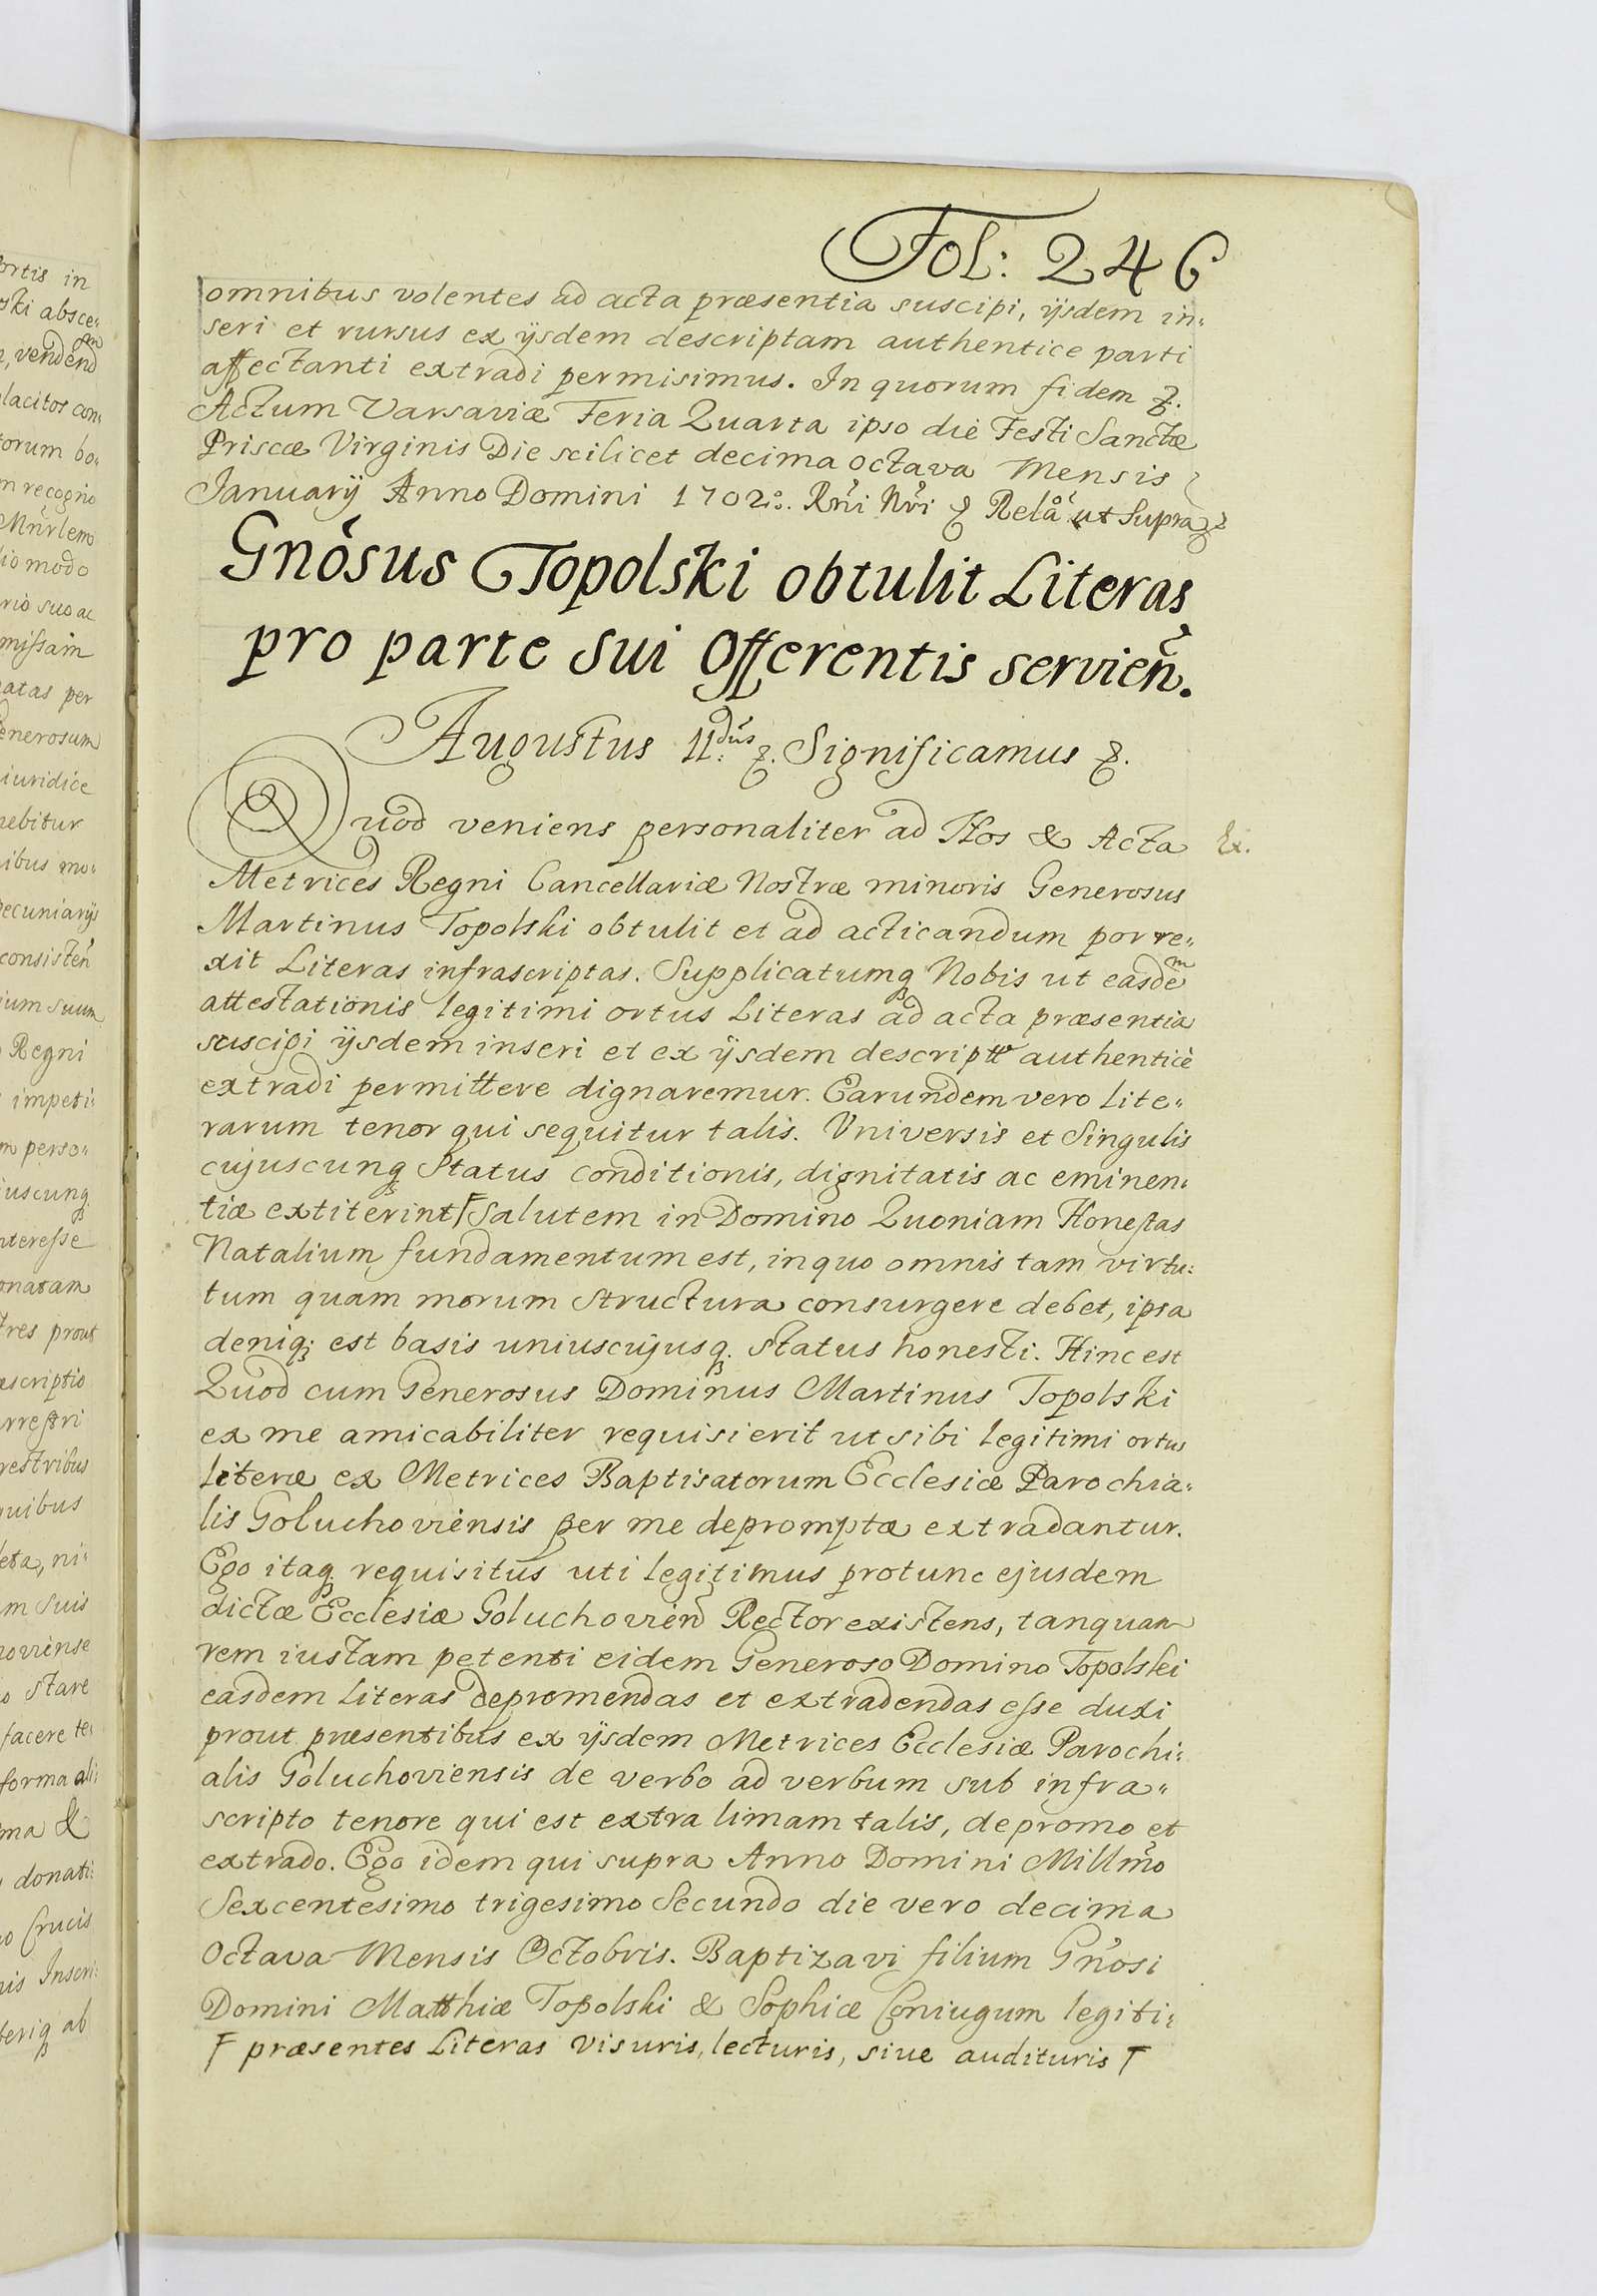 Fol: 246
omnibus volentes ad acta præsentia suscipi, ijsdem in:
seri et rursus ex ijsdem descriptam authentice parti
affectanti extradi permisimus. In quorum fidem &.
Actum Varsaviæ Feria Quarta ipso die Festi Sanctæ
Priscæ Virginis Die scilicet decima octava Mensis
Januarij Anno Domini 1702do. Rñi Nri & Relå ut Supra
Gnosus Topolski obtulit Literas
pro parte sui Offerentis servień.
Augustus IIdus &. Significamus &.
Quod veniens personaliter ad Nos & Acta Ex.
Metrices Regni Cancellariæ Nostræ minoris Generosus
Martinus Topolski obtulit et ad acticandum porre:
xit Literas infrascriptas. Supplicatumq Nobis ut easdem
attestationis legitimi ortus Literas ad acta præsentia
suscipi ijsdem inseri et ex ijsdem descriptt authenticè
extradi permittere dignaremur. Earundem vero Lite:
rarum tenor qui sequitur talis. Universis et Singulis
cujuscunq Status conditionis, dignitatis ac eminen:
tiæ extiterint Ƒ Salutem in Domino Quoniam Honestas
Natalium fundamentum est, in quo omnis tam virtu:
tum quam morum structura consurgere debet, ipsa
deniq; est basis uniuscujusq. status honesti. Hinc est
Quod cum Generosus Dominus Martinus Topolski
ex me amicabiliter requisierit ut sibi legitimi ortus
Literæ ex Metrices Baptisatorum Ecclesiæ Parochia:
lis Goluchoviensis per me depromptæ extradantur.
Ego itaq requisitus uti legitimus protunc ejusdem
dictæ Ecclesiæ Goluchovień Rector existens, tanquam
rem iustam petenti eidem Generoso Domino Topolski
easdem Literas depromendas et extradendas esse duxi
prout præsentibus ex ijsdem Metrices Ecclesiæ Parochi:
alis Goluchoviensis de verbo ad verbum sub infra:
scripto tenore qui est extra limam talis, depromo et
extrado. Ego idem qui supra Anno Domini Millmo
Sexcentesimo trigesimo Secundo die vero decima
Octava Mensis Octobris. Baptizavi filium Gnosi
Domini Matthiæ Topolski & Sophiæ Coniugum legiti:
Ƒ præsentes Literas visuris, lecturis, sive audituris Ƒ
ortis in
ski absce:
, vendend
lacitos con:
orum bo:
m recogno
Mnrlem
lio modo
rio suo ac
missam
atas per
enerosum
iuridice
ebitur
ibus mo:
ecuniarijs
consisteń
ium suum
Regni
impeti:
m perso:
iuscunq
nteresse
onatam
tres prout
escriptio
rrestri
restribus
uibus
eta, ni:
m suis
oviense
o stare
facere te:
forma ali:
ma &
donati:
o Crucis
is Inscri:
teriq ab